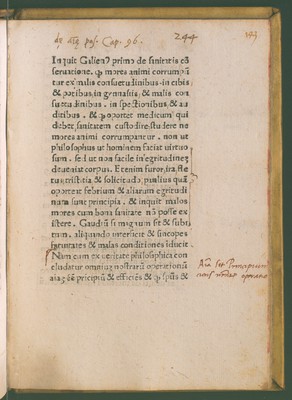 Cap. 96.
244
Inquit Galien⁹ primo de sanitatis cō
seruatione. ꝙ mores animi corrumpū
tur ex malis consuetudinibus in cibis
& potibus, in gymnasiis, & malis con
suetudinibus, in spectionibus, & au
ditibus. & ꝙ oportet medicum qui
debet sanitatem custodire, studere ne
mores animi corrumpantur. non ut
philosophus ut hominem faciat uirtuo
sum. sed ut non facile in egritudinez
deueniat corpus. Etenim furor, ira, fle
tus, tristitia & solicitudo, plusquā
oportet febrium & aliarum egritudi
num sunt principia. & inquit malos
mores cum bona sanitate nō posse ex
istere. Gaudiū si magnum sit & subi
tum, aliquando interficit & sincopes
& malas conditiones iducit
Nam cum ex ueritate philosophica con
cludatur omniuz nostrarū operationū
aiaz cē principiū & efficiēs & ꝙ sp̄us &